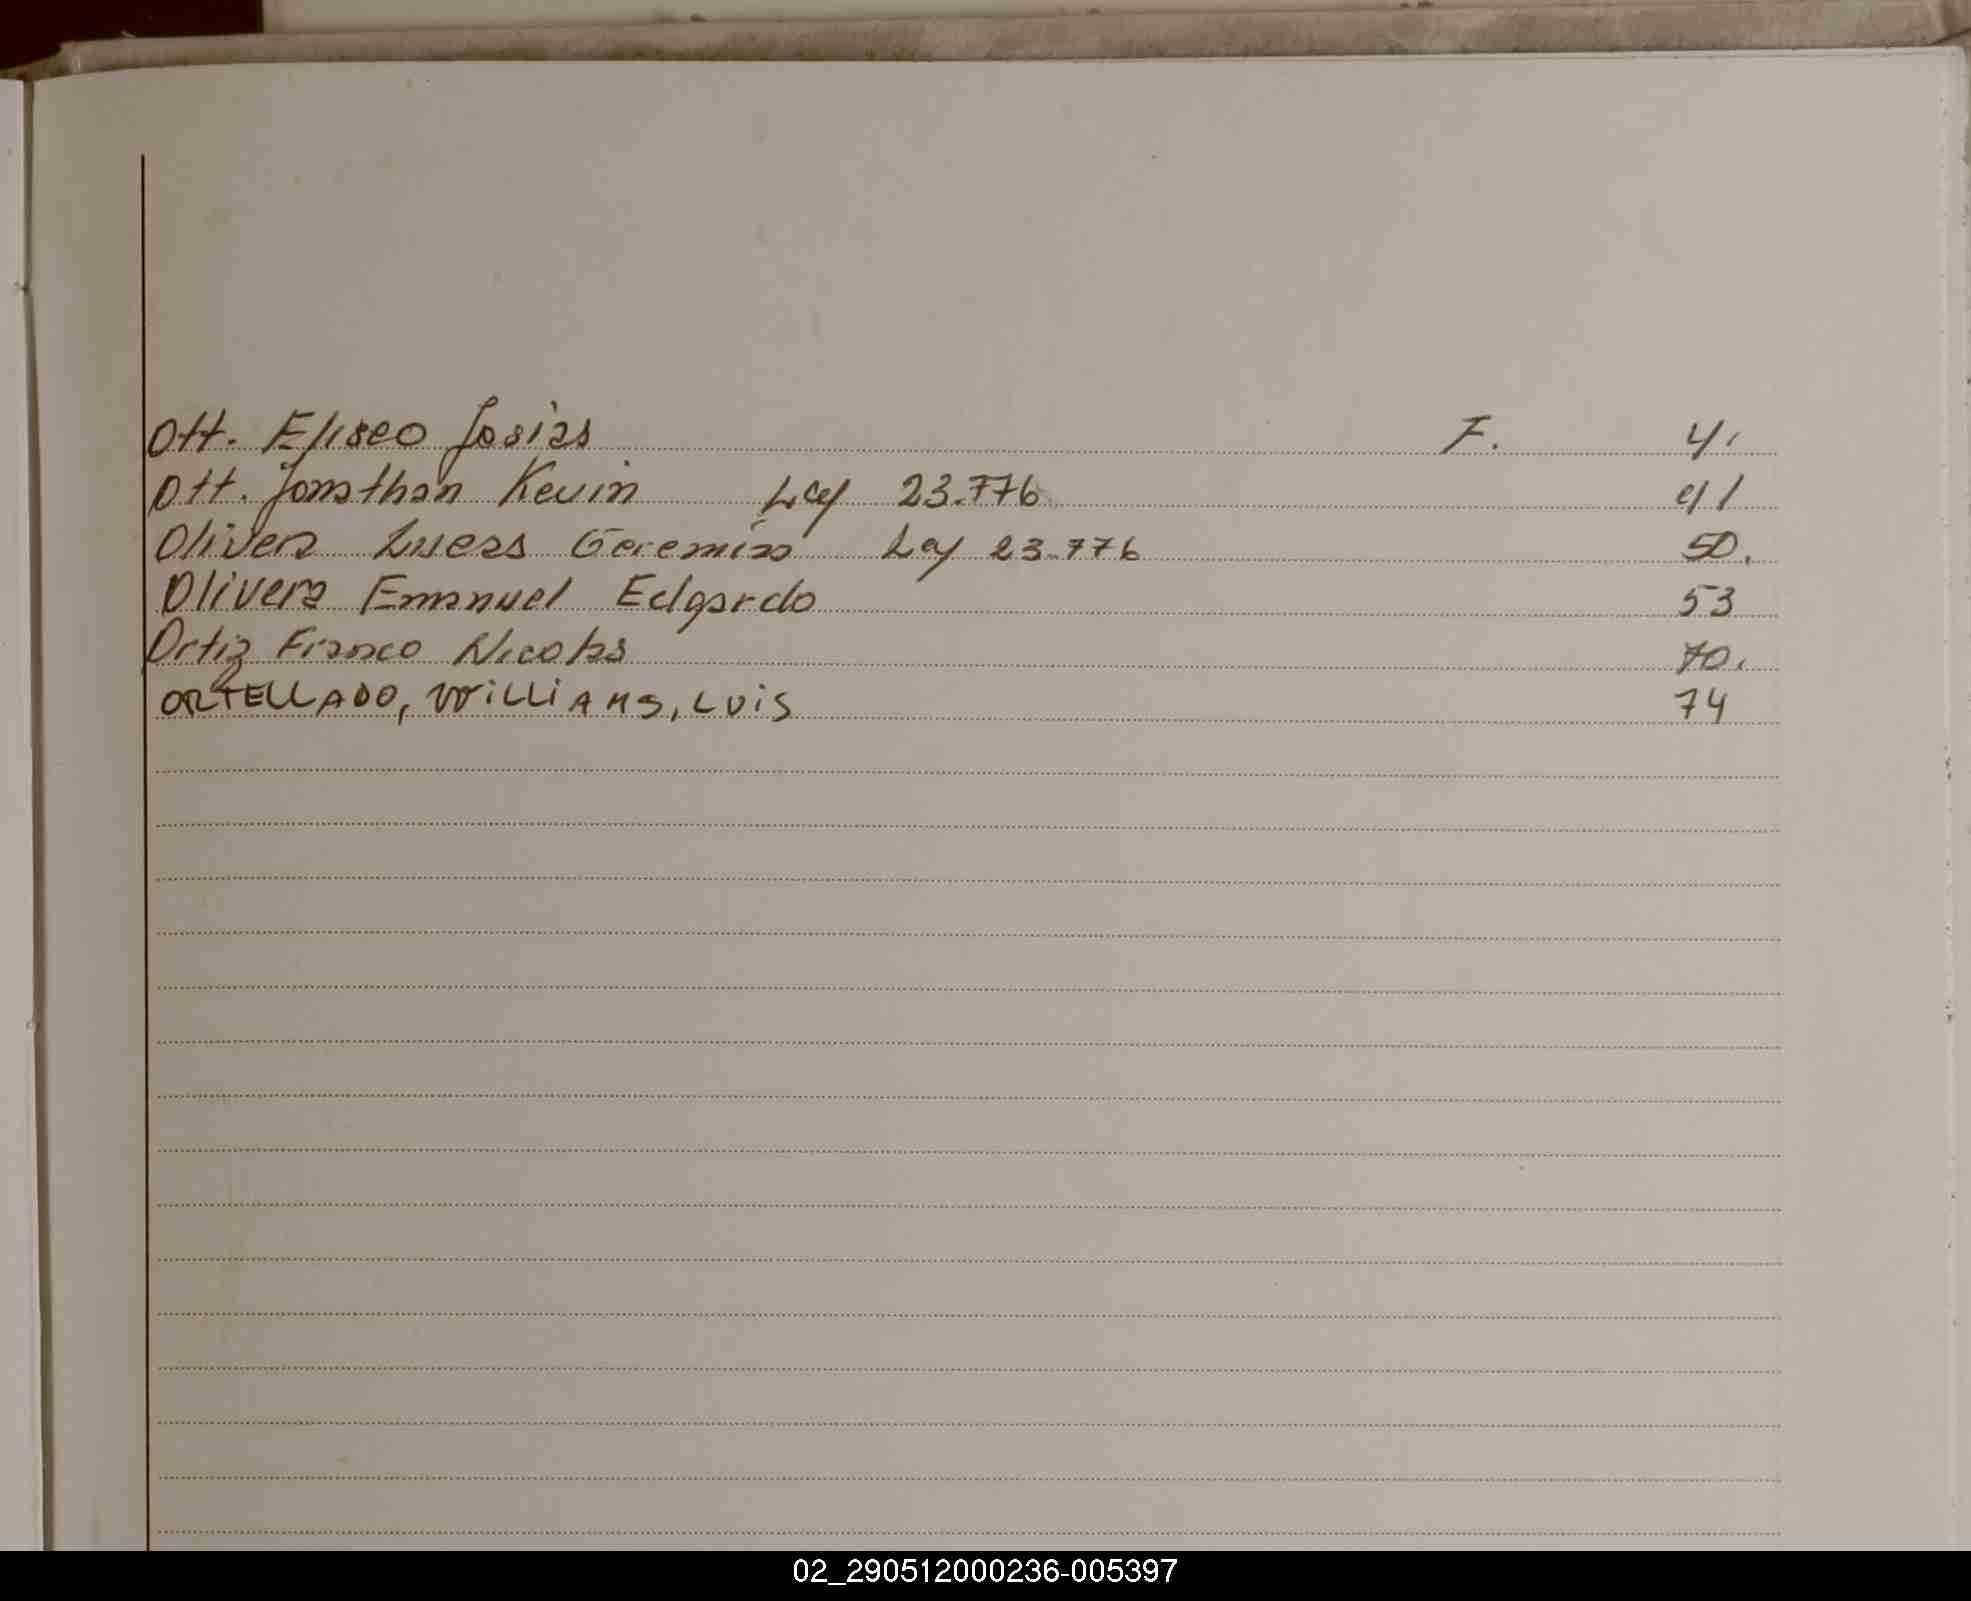 Ott. Eliseo Josias F. 41
Ott. Jonathan Kevin Ley 23.776 41
Olivera Lucas Geremias Ley 23.776 50.
Olivera Emanuel Edgardo 53
Ortiz Franco Nicolas 70.
ORTELLADO, WILLIAMS, LUIS 74
02_290512000236-005397